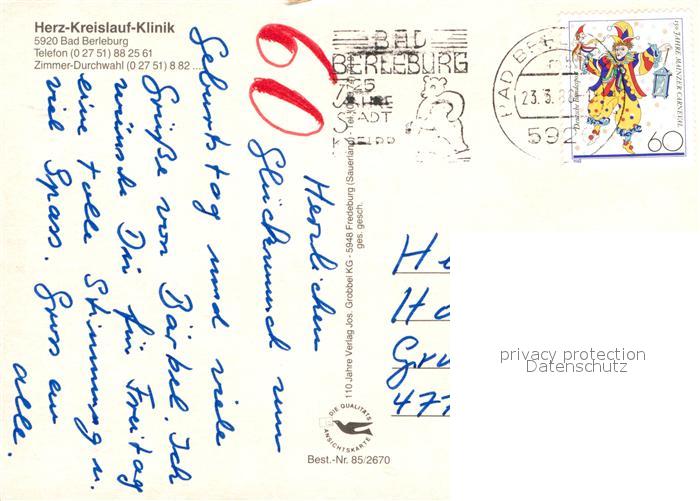 Herz-Kreislauf-Klinik
5920 Bad Berleburg
Telefon (0 27 51) 88 25 61
Zimmer-Durchwahl (0 27 51) 8 82 ....
60
Herzlichen
Glückwunsch zum
Geburtstag und viele
Grüße von Bärbel. Ich
wünsche Dir für Freitag
eine tolle Stimmung u.
viel Spass. Gruss an
alle.
110 Jahre Verlag Jos. Grobbel KG - 5948 Fredeburg (Sauerland)
ges. gesch.
DIE QUALITÄTS
ANSICHTSKARTE
Best.-Nr. 85/2670
BAD
BERLEBURG
25
JAHRE
STADT
BAD BER
23.3.88
592
150 JAHRE MAINZER CARNEVAL
Deutsche Bundespost
60
He
Ha
Gru
477
privacy protection
Datenschutz